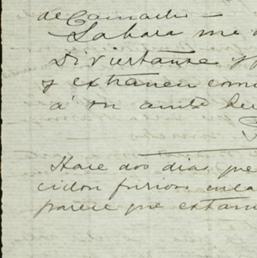 de Camacho —
Sabara me
Diviertanse y
y extrañen com
a' un
Hace dos dias que
ciclon furioso en la
parece que estam